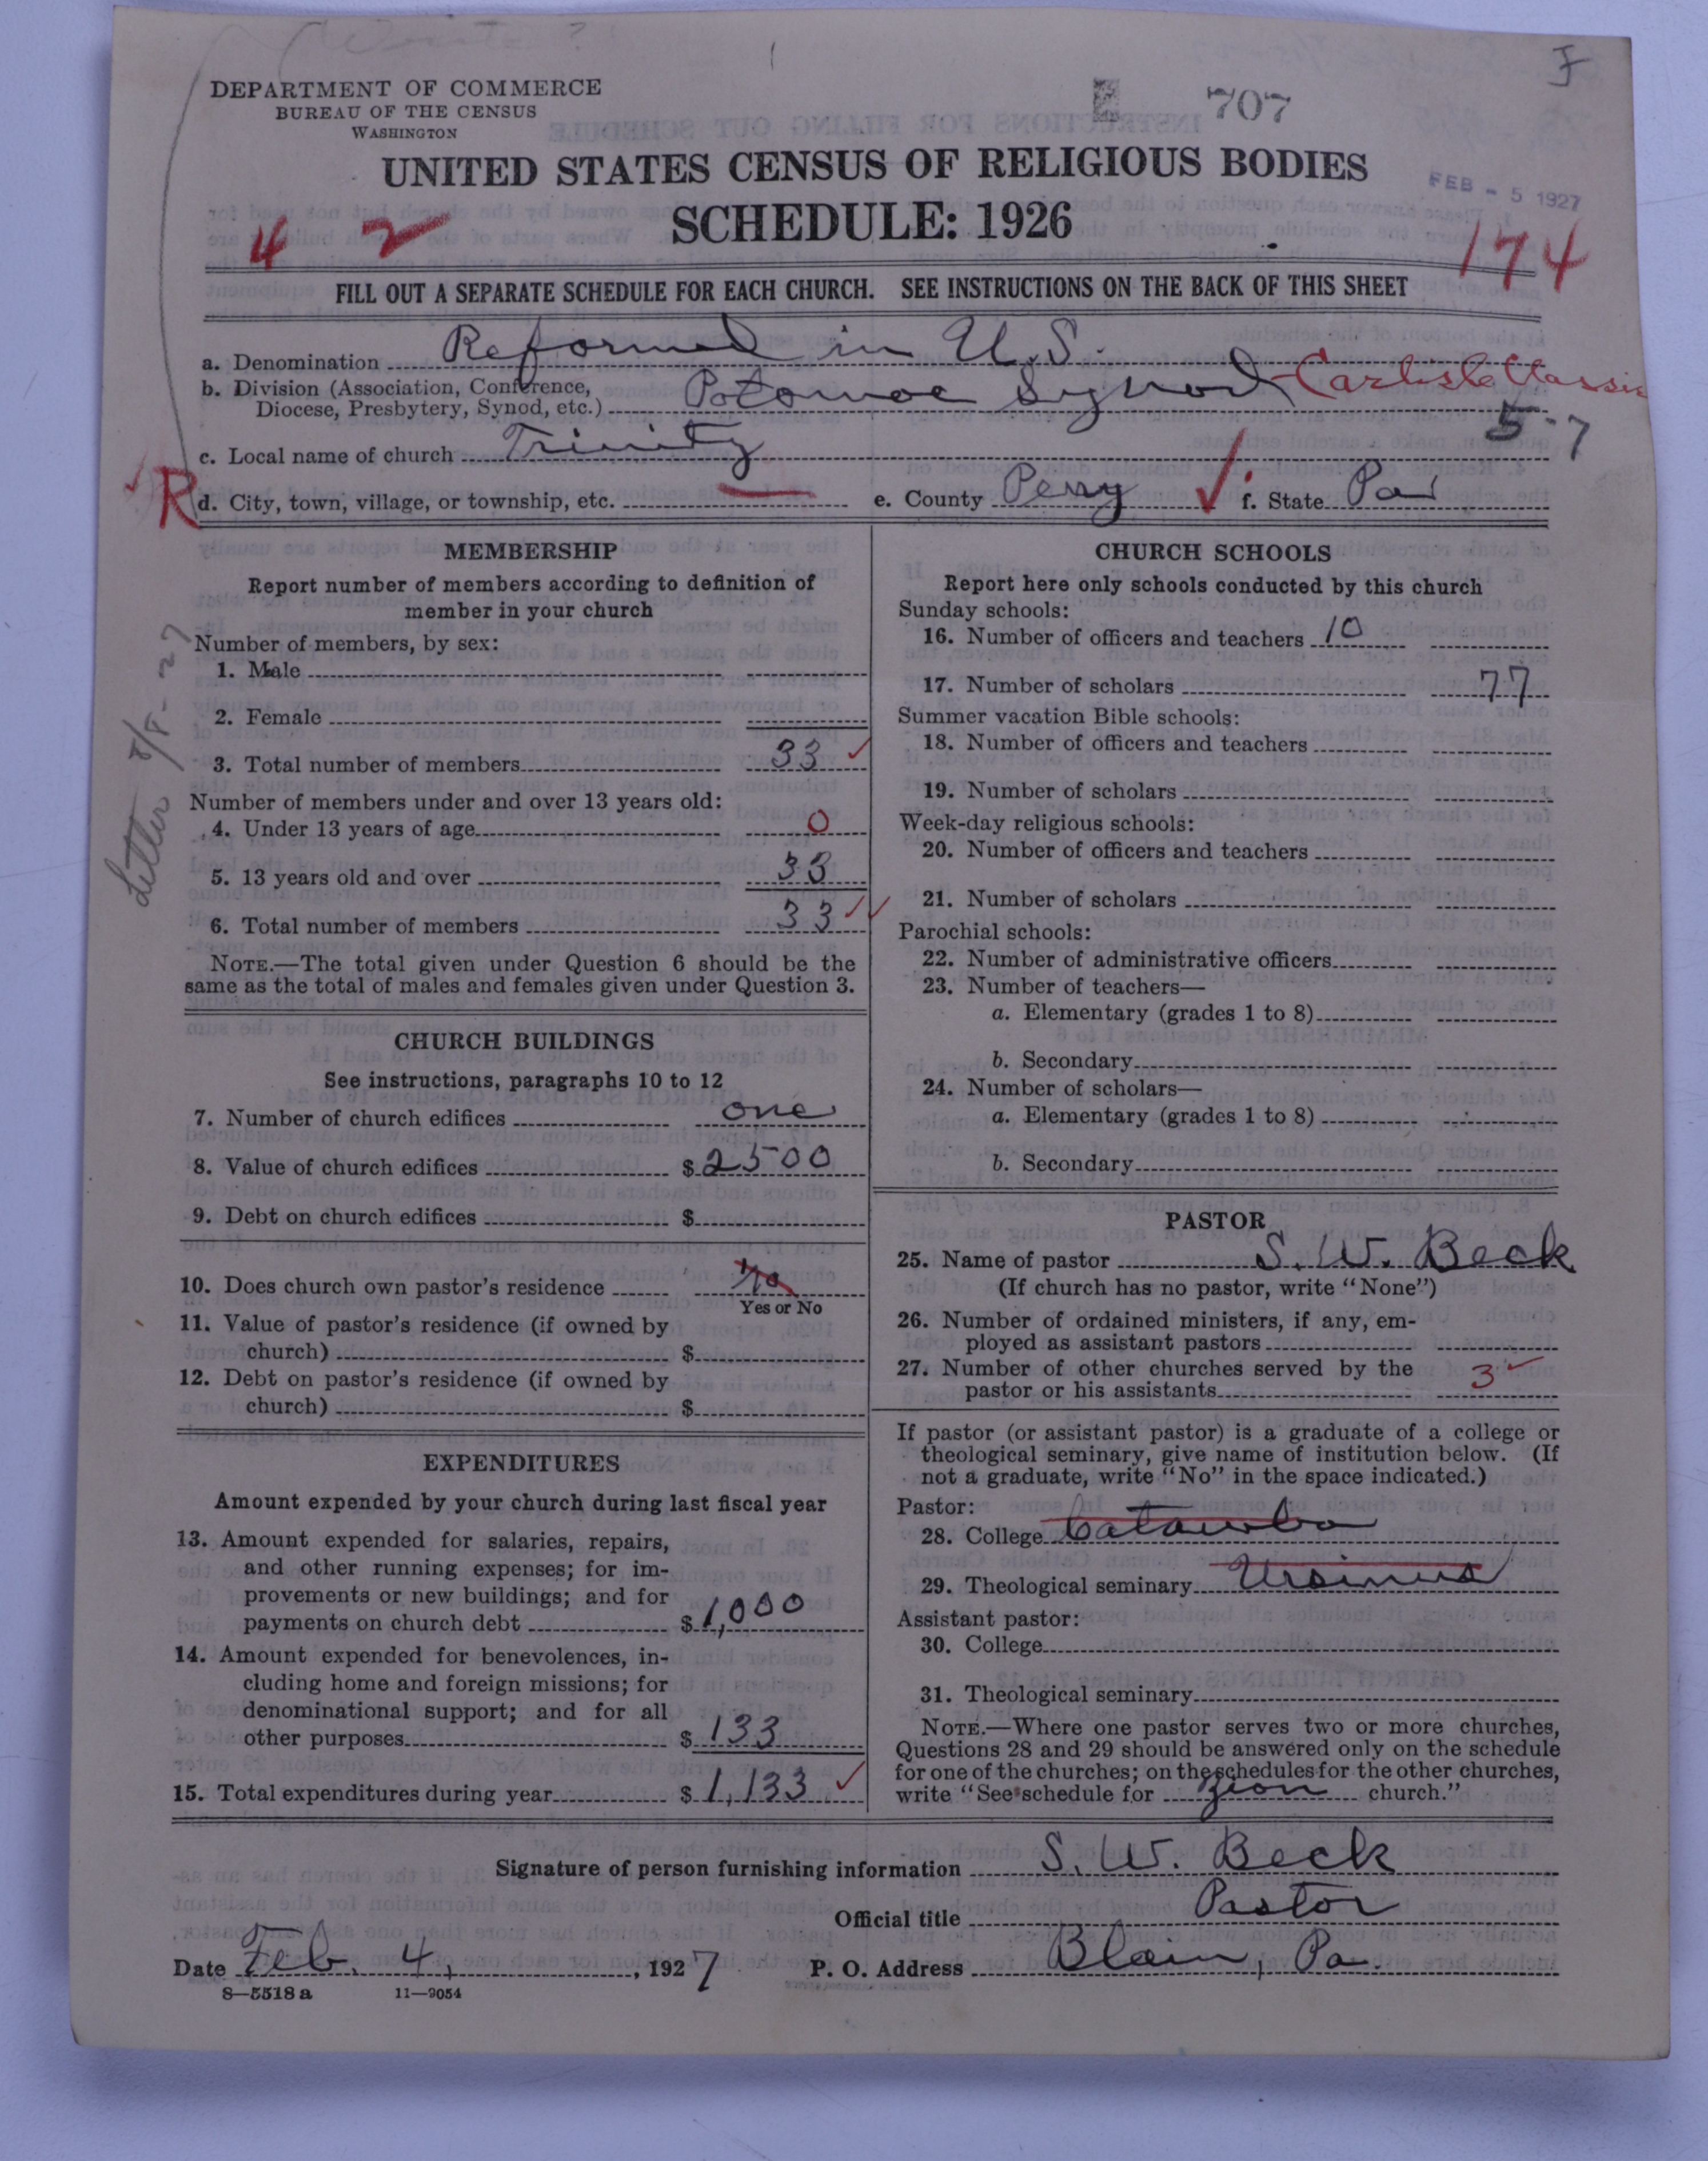 DEPARTMENT OF COMMERCE
BUREAU OF THE CENSUS
WASHINGTON
707
UNITED STATES CENSUS OF RELIGIOUS BODIES
FEB - 5 1927
SCHEDULE: 1926
4 2
174
FILL OUT A SEPARATE SCHEDULE FOR EACH CHURCH. SEE INSTRUCTIONS ON THE BACK OF THIS SHEET
a. Denomination Reformed in U.S.
b. Division (Association, Conference,
Diocese, Presbytery, Synod, etc.) Potomac Synod - Carlisle Classis
5-7
c. Local name of church Trinity
R d. City, town, village, or township, etc. e. County Perry f. State Pa
MEMBERSHIP
Report number of members according to definition of
member in your church
Number of members, by sex:
1. Male
2. Female
3. Total number of members 33
Number of members under and over 13 years old:
4. Under 13 years of age 0
5. 13 years old and over 33
6. Total number of members 33
NOTE.—The total given under Question 6 should be the
same as the total of males and females given under Question 3.
Letter 8/8-27
CHURCH BUILDINGS
See instructions, paragraphs 10 to 12
7. Number of church edifices one
8. Value of church edifices $2500
9. Debt on church edifices $
10. Does church own pastor's residence no
Yes or No
11. Value of pastor's residence (if owned by
church) $
12. Debt on pastor's residence (if owned by
church) $
EXPENDITURES
Amount expended by your church during last fiscal year
13. Amount expended for salaries, repairs,
and other running expenses; for im-
provements or new buildings; and for
payments on church debt $1,000
14. Amount expended for benevolences, in-
cluding home and foreign missions; for
denominational support; and for all
other purposes $133
15. Total expenditures during year $1,133
CHURCH SCHOOLS
Report here only schools conducted by this church
Sunday schools:
16. Number of officers and teachers 10
17. Number of scholars 77
Summer vacation Bible schools:
18. Number of officers and teachers
19. Number of scholars
Week-day religious schools:
20. Number of officers and teachers
21. Number of scholars
Parochial schools:
22. Number of administrative officers
23. Number of teachers—
a. Elementary (grades 1 to 8)
b. Secondary
24. Number of scholars—
a. Elementary (grades 1 to 8)
b. Secondary
PASTOR
25. Name of pastor S. W. Beck
(If church has no pastor, write "None")
26. Number of ordained ministers, if any, em-
ployed as assistant pastors
27. Number of other churches served by the
pastor or his assistants 3
If pastor (or assistant pastor) is a graduate of a college or
theological seminary, give name of institution below. (If
not a graduate, write "No" in the space indicated.)
Pastor:
28. College Catawba
29. Theological seminary Ursinus
Assistant pastor:
30. College
31. Theological seminary
NOTE.—Where one pastor serves two or more churches,
Questions 28 and 29 should be answered only on the schedule
for one of the churches; on the schedules for the other churches,
write "See schedule for Zion church."
Signature of person furnishing information S. W. Beck
Official title Pastor
Date Feb. 4, 1927 P. O. Address Blain, Pa.
8—5518 a 11—9054